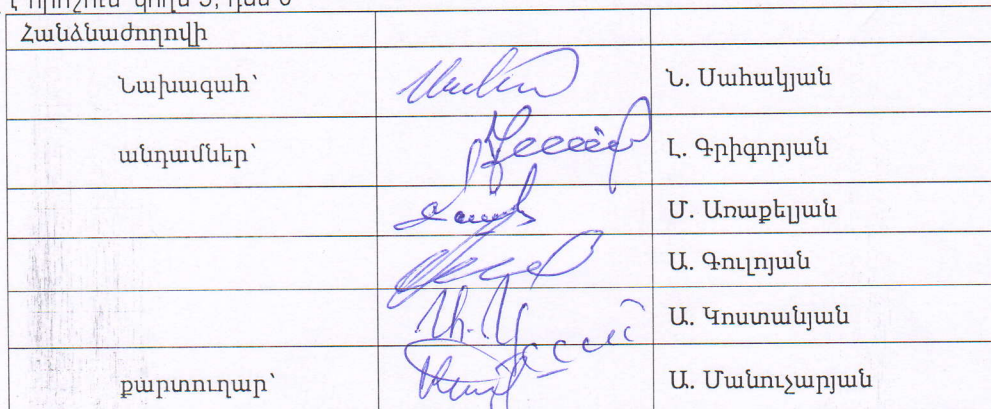 է որոշում՝ կողմ 5, դեմ 0
Հանձնաժողովի
Նախագահ՝ Ն. Սահակյան
անդամներ՝ Լ. Գրիգորյան
Մ. Առաքելյան
Ա. Գուլոյան
Ա. Կոստանյան
քարտուղար՝ Ա. Մանուչարյան